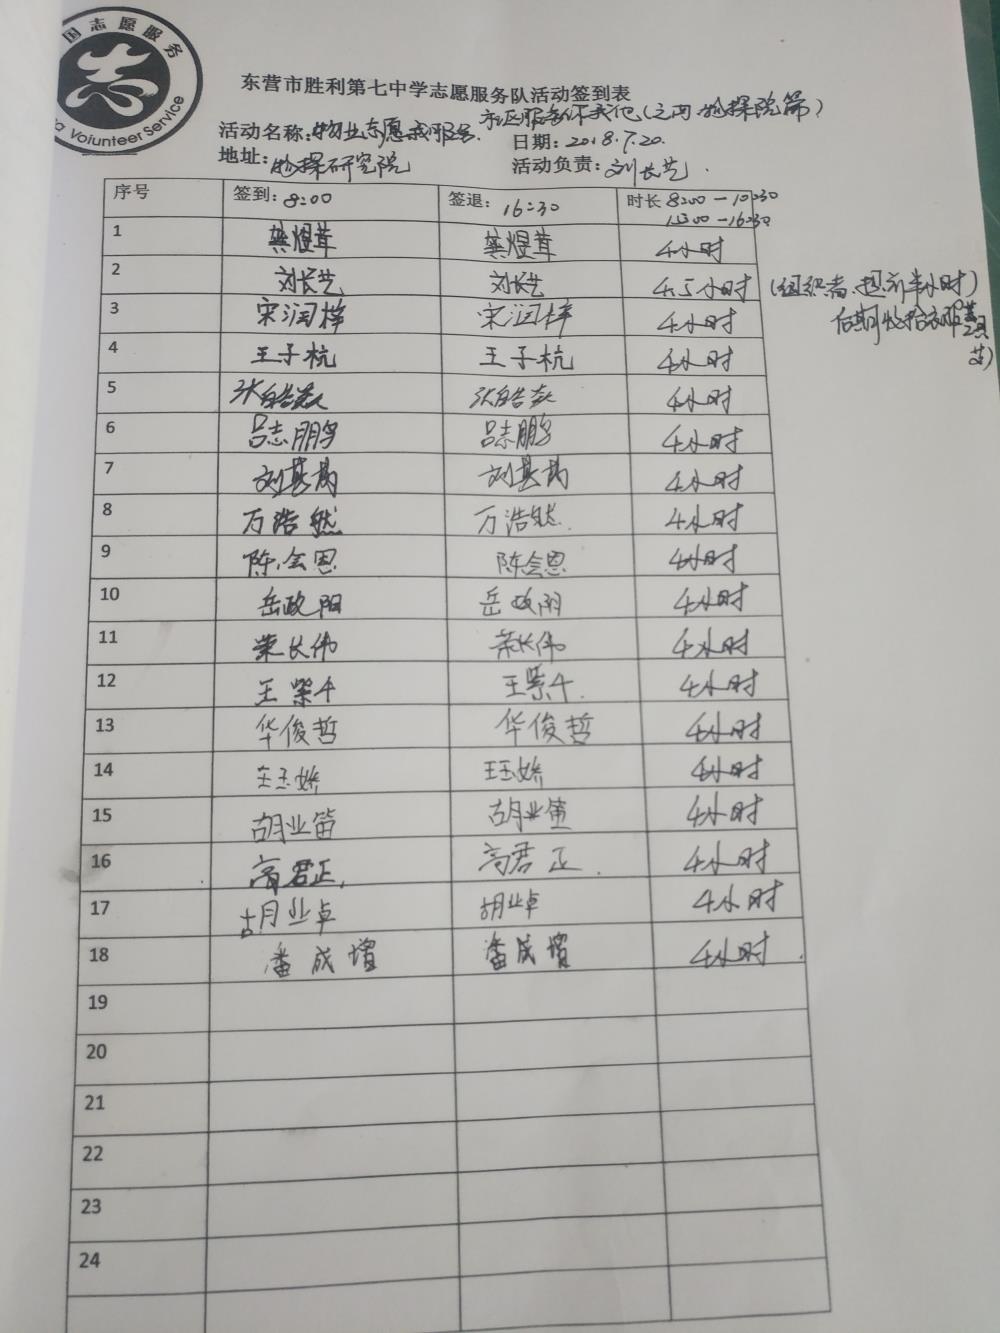 国志愿服务
志
Volunteer Service
东营市胜利第七中学志愿服务队活动签到表
市证服务你我他(之 物探院篇)
活动名称: 物业志愿 服务. 日期: 2018.7.20.
地址: 物探研究院 活动负责: 刘长艺.
序号 签到: 8:00 签退: 16:30 时长 8:00-10:30
-16:30
1 龚煜茸 龚煜茸 4小时
2 刘长艺 刘长艺 4.5小时 (组织者、提前半小时)
3 宋润梓 宋润梓 4小时 后期收拾
4 王子杭 王子杭 4小时
5 张皓 张皓 4小时
6 吕志鹏 吕志鹏 4小时
7 刘 刘 4小时
8 万浩然 万浩然. 4小时
9 陈会恩 陈会恩 4小时
10 岳政阳 岳政阳 4小时
11 荣长伟 荣长伟 4小时
12 王紫千 王紫千. 4小时
13 华俊哲 华俊哲 4小时
14 王玉娇 王玉娇 4小时
15 胡业笛 胡业笛 4小时
16 高君正. 高君正. 4小时
17 胡业卓 胡业卓 4小时
18 潘成 潘成 4小时.
19
20
21
22
23
24